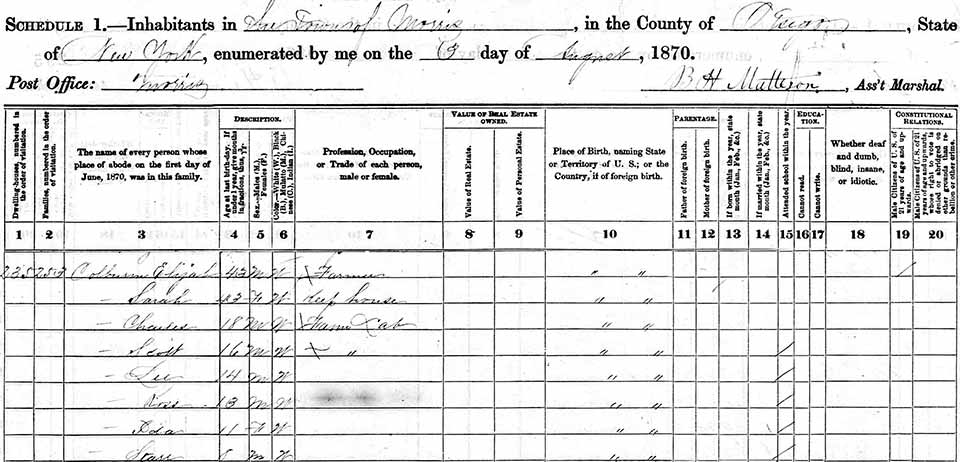 SCHEDULE 1.—Inhabitants in The Town of Morris, in the County of Otsego, State
of New York, enumerated by me on the day of August, 1870.
Post Office: Morris B H Matteson, Ass't Marshal.
Dwelling-houses, numbered in the order of visitation.
Families, numbered in the order of visitation.
The name of every person whose place of abode on the first day of June, 1870, was in this family.
DESCRIPTION.
Age at last birth-day. If under 1 year, give months in fractions, thus,
Sex.—Males (M.), Females (F.)
Color.—White (W.), Black (B.), Mulatto (M.), Chinese (C.), Indian (I.)
Profession, Occupation, or Trade of each person, male or female.
VALUE OF REAL ESTATE OWNED.
Value of Real Estate.
Value of Personal Estate.
Place of Birth, naming State or Territory of U. S.; or the Country, if of foreign birth.
PARENTAGE.
Father of foreign birth.
Mother of foreign birth.
If born within the year, state month (Jan., Feb., &c.)
If married within the year, state month (Jan., Feb., &c.)
Attended school within the year.
EDUCATION.
Cannot read.
Cannot write.
Whether deaf and dumb, blind, insane, or idiotic.
CONSTITUTIONAL RELATIONS.
Male Citizens of U. S. of 21 years of age and upwards.
Male Citizens of U. S. of 21 years of age and upwards, whose right to vote is denied or abridged on other grounds than rebellion or other crime.
1 2 3 4 5 6 7 8 9 10 11 12 13 14 15 16 17 18 19 20
235 Colburn Elijah 43 M W Farmer " " /
— Sarah 43 F W Keep house " "
— Charles 18 M W Farm Lab " "
— Scott 16 M W " " " /
— Lee 14 M W " " /
— Ross 13 M W " " /
— Ida 11 F W " " /
— M W " " /